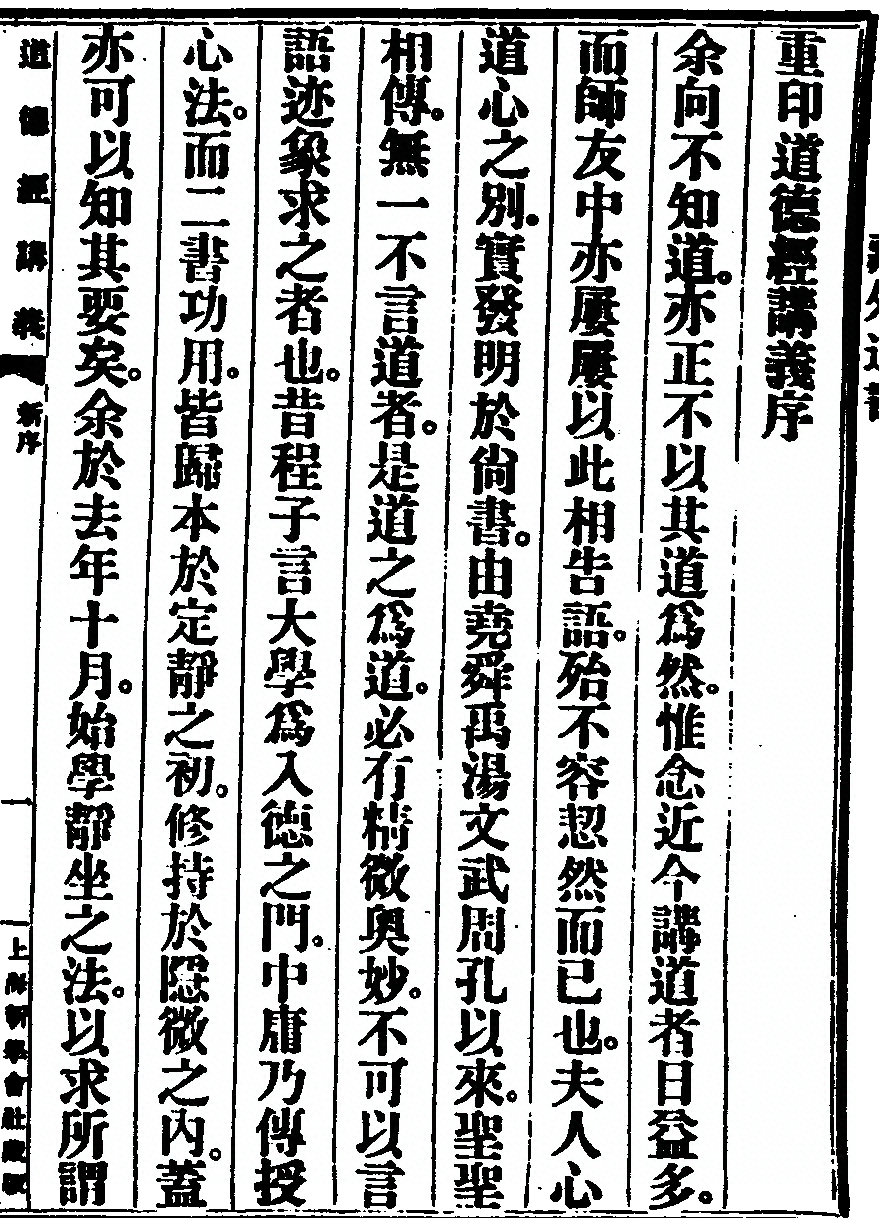 重印道德經講義序
余向不知道。亦正不以其道爲然。惟念近今講道者日益多。
而師友中亦屢屢以此相告語。殆不容恝然而已也。夫人心
道心之別。實發明於尙書。由堯舜禹湯文武周孔以來。聖聖
相傳。無一不言道者。是道之爲道。必有精微奧妙。不可以言
語迹象求之者也。昔程子言大學爲入德之門。中庸乃傳授
心法。而二書功用。皆歸本於定靜之初。修持於隱微之內。蓋
亦可以知其要矣。余於去年十月。始學靜坐之法。以求所謂
道德經講義 新序
一
上海新學會社藏版